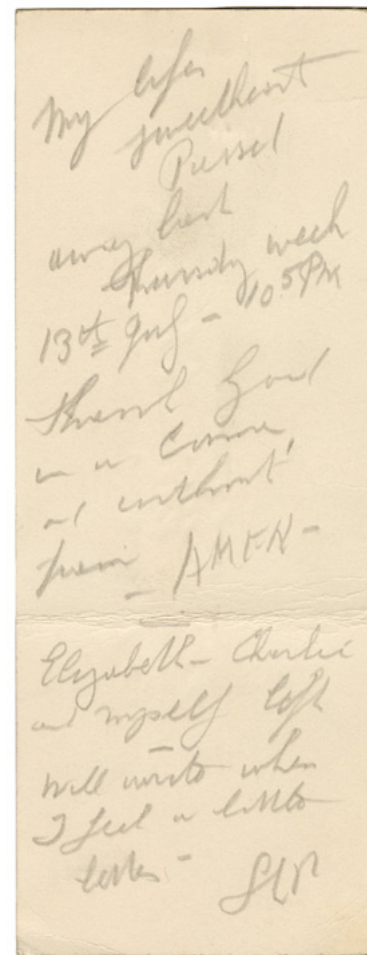 My lifes
sweetheart
Passed
away last
Thursday week
13th July - 10 5 PM
Thank God
in a coma,
and without
pain - AMEN -
Elizabeth - Charlie
and myself left
will write when
I feel a little
better -